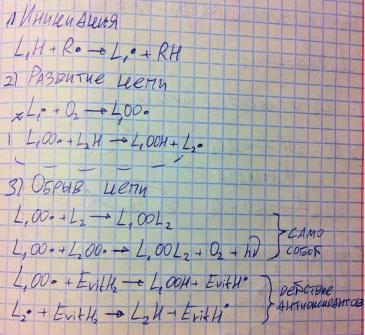 1) Инициация
L₁H + R• → L₁• + RH
2) Развитие цепи
L₁• + O₂ → L₁OO•
L₁OO• + L₂H → L₁OOH + L₂•
3) Обрыв цепи
L₁OO• + L₂ → L₁OOL₂
L₁OO• + L₂OO• → L₁OOL₂ + O₂ + hν
само
собой
L₁OO• + EvitH₂ → L₁OOH + EvitH•
L₂• + EvitH₂ → L₂H + EvitH•
действие
антиоксидантов